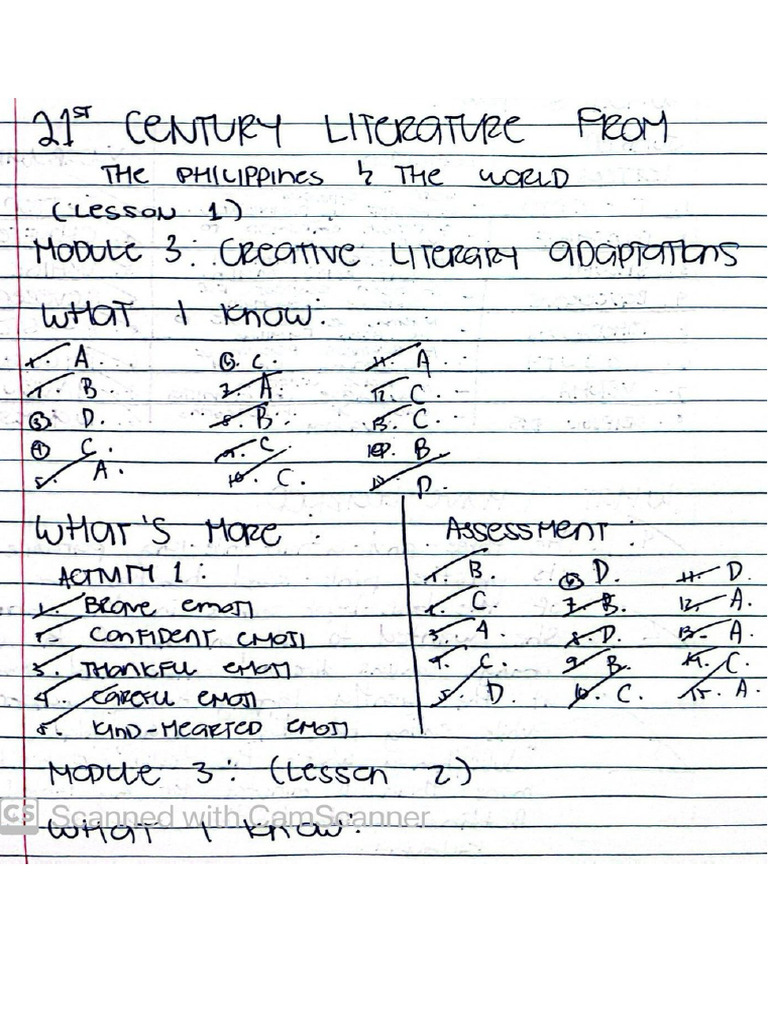 21ST CENTURY LITERATURE FROM
THE PHILIPPINES & THE WORLD
(LESSON 1)
MODULE 3: CREATIVE LITERARY ADAPTATIONS
WHAT I KNOW:
1. A. 6. C. 11. A
2. B. 7. A. 12. C.
3. D. 8. B. 13. C.
4. C. 9. C. 14. B
5. A. 10. C. 15. D.
WHAT'S MORE:
ACTIVITY 1:
1. BRAVE EMOJI
2. CONFIDENT EMOJI
3. THANKFUL EMOJI
4. CAREFUL EMOJI
5. KIND-HEARTED EMOJI
ASSESSMENT:
1. B. 6. D. 11. D.
2. C. 7. B. 12. A.
3. A. 8. D. 13. A.
4. C. 9. B. 14. C.
5. D. 10. C. 15. A.
MODULE 3: (LESSON 2)
CS Scanned with CamScanner
WHAT I KNOW: